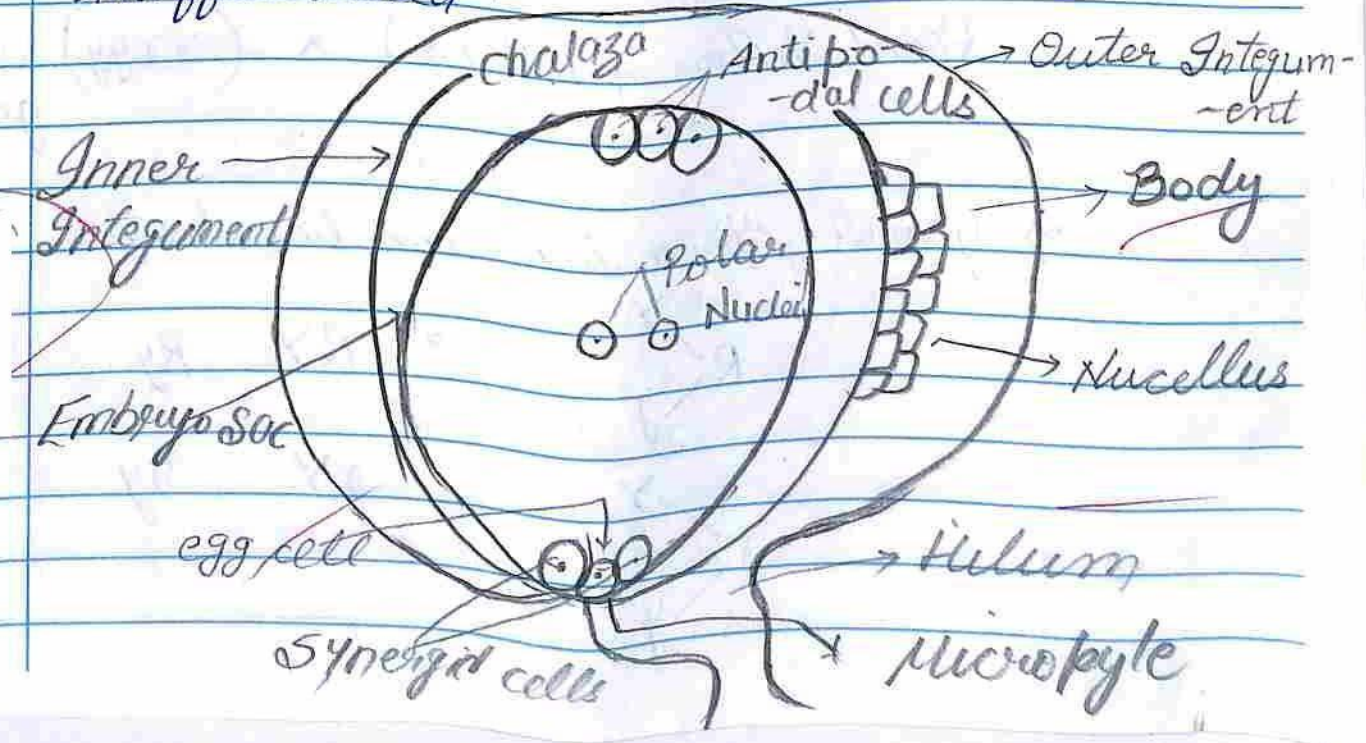 Chalaza
Antipo-
-dal cells
Outer Integum-
-ent
Inner
Integument
Body
Polar
Nuclei
Nucellus
Embryo Sac
egg cell
Hilum
Synergid cells
Micropyle